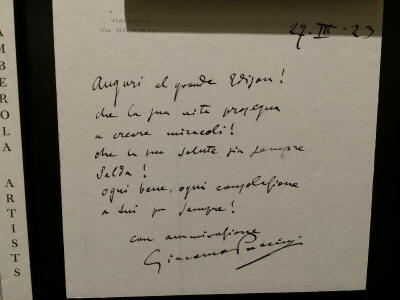 AMBEROLA ARTISTS
Viareggio
27 · III · 23
Auguri al grande Edison!
che la sua vita prosegua
a creare miracoli!
che la sua salute sia sempre
salda!
ogni bene, ogni consolazione
a Lui per sempre!
con ammirazione
Giacomo Puccini